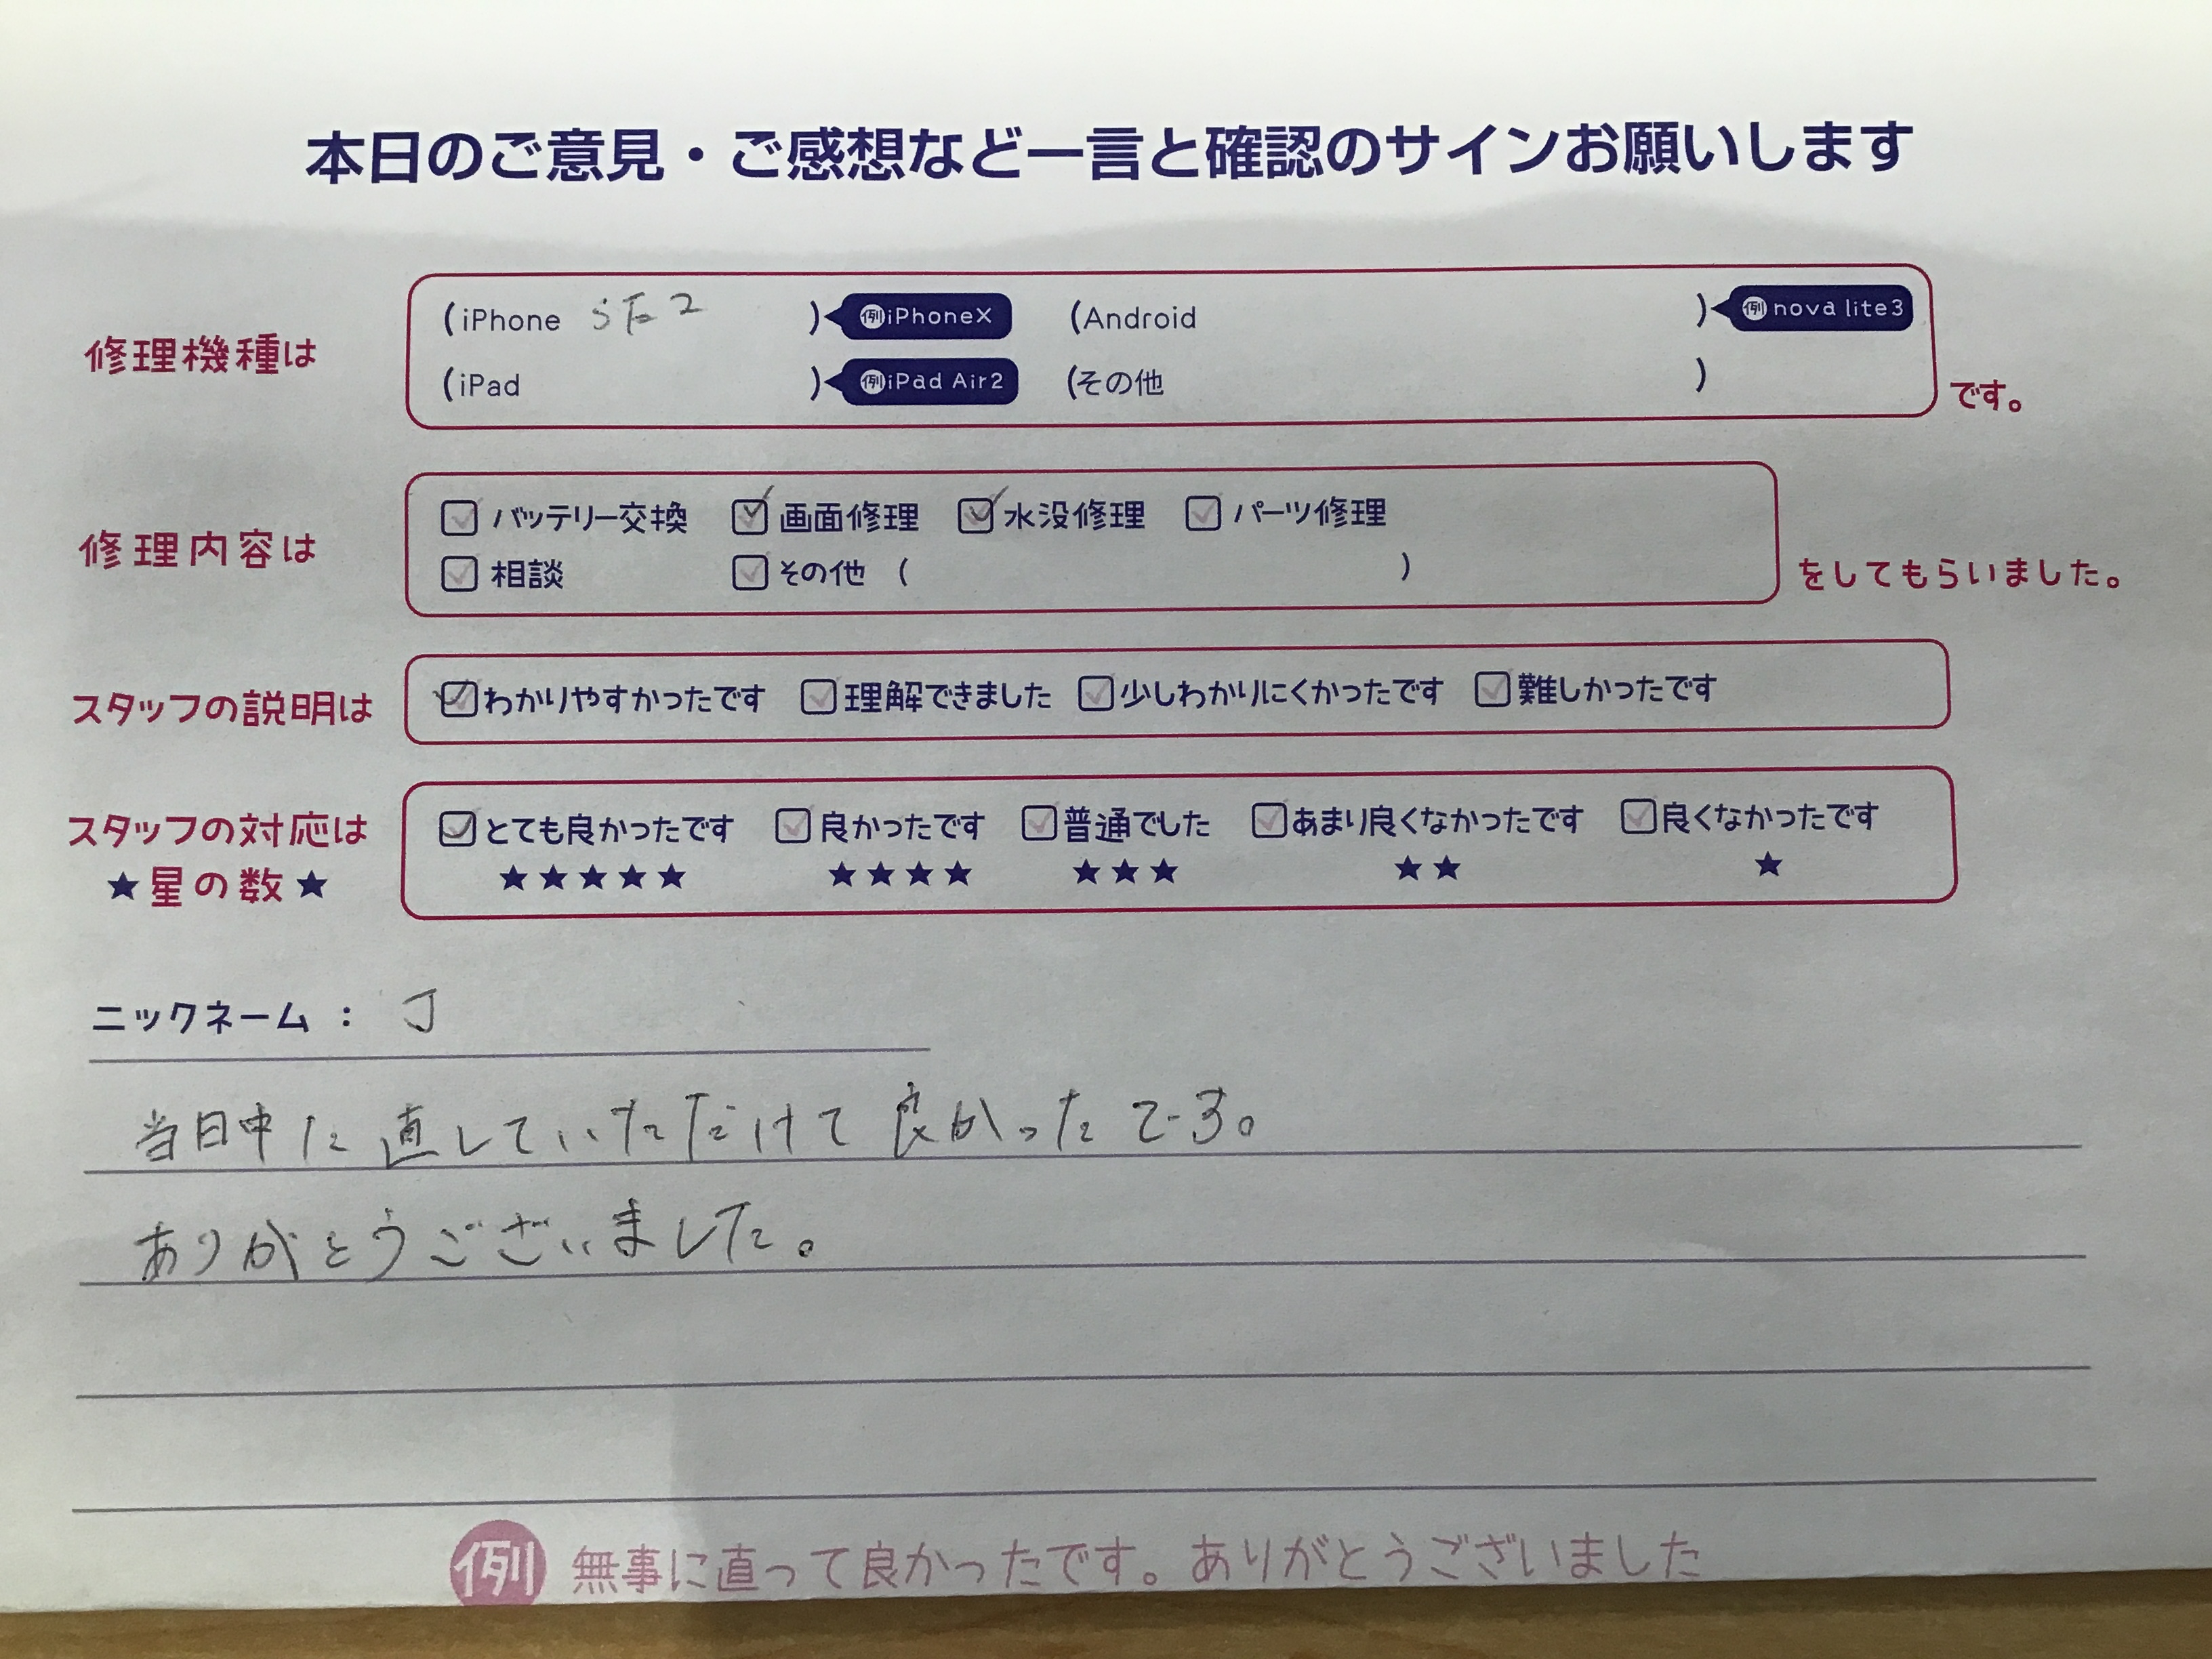 本日のご意見・ご感想など一言と確認のサインお願いします
修理機種は
(iPhone SE2 ) 例iPhoneX (Android ) 例 nova lite3
(iPad ) 例iPad Air2 (その他 ) です。
修理内容は
バッテリー交換 画面修理 水没修理 パーツ修理
相談 その他 ( ) をしてもらいました。
スタッフの説明は わかりやすかったです 理解できました 少しわかりにくかったです 難しかったです
スタッフの対応は とても良かったです 良かったです 普通でした あまり良くなかったです 良くなかったです
★星の数★ ★★★★★ ★★★★ ★★★ ★★ ★
ニックネーム : J
当日中に直していただけて良かったです。
ありがとうございました。
例 無事に直って良かったです。ありがとうございました